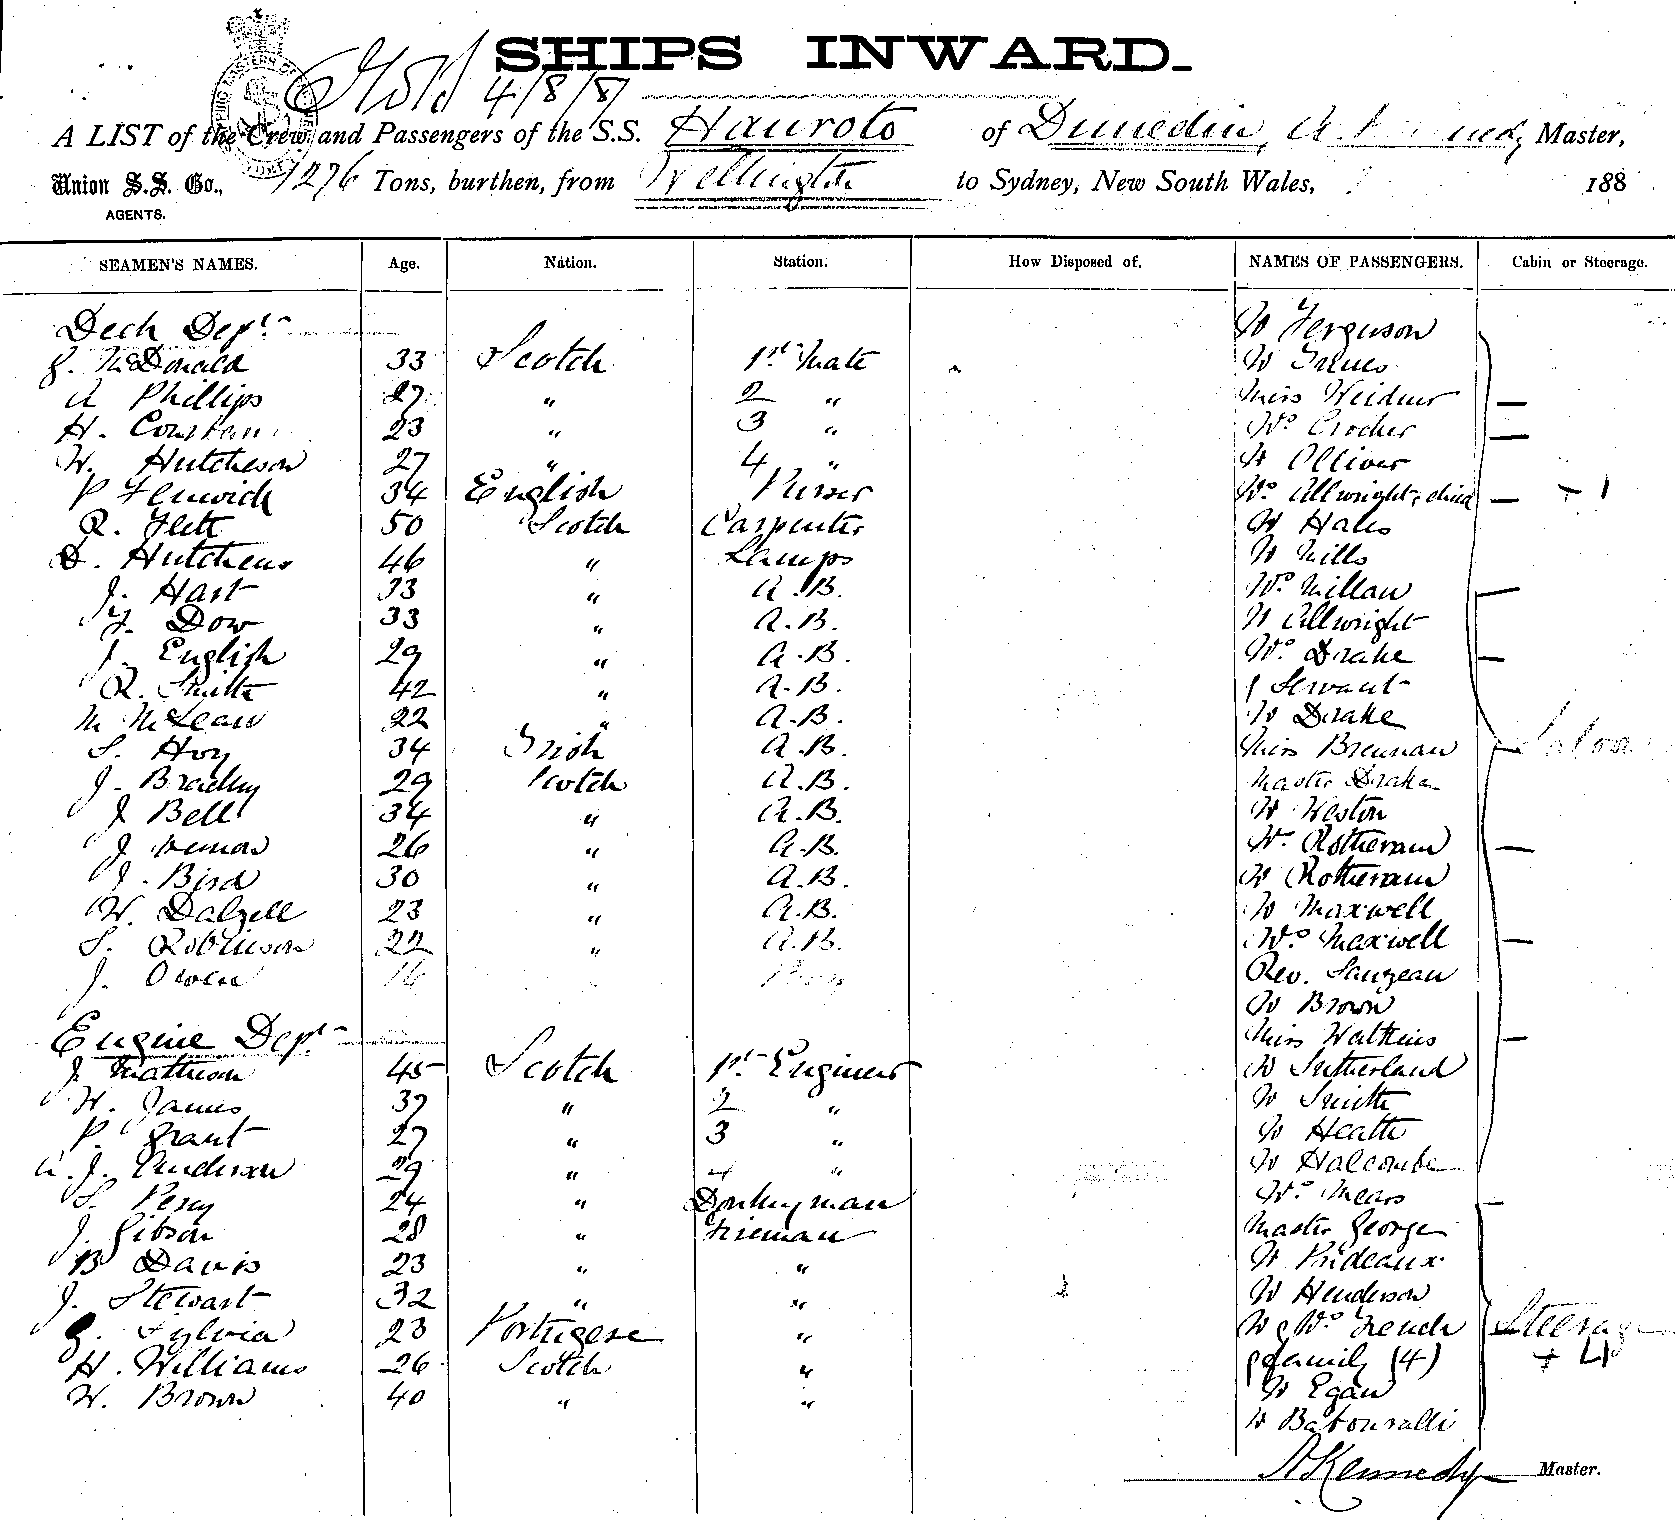 SHIPS INWARD.
4/8/87
A LIST of the Crew and Passengers of the S.S. Hauroto of Dunedin, A. Kennedy Master,
Union S.S. Co., 1276 Tons, burthen, from Wellington to Sydney, New South Wales, 188
AGENTS.
SEAMEN'S NAMES. Age. Nation. Station. How Disposed of. NAMES OF PASSENGERS. Cabin or Steerage.
Deck Dept. Mr Ferguson
McDonald 33 Scotch 1st Mate Mr
A Phillips 27 " 2 " Miss Weidner —
H. 23 " 3 " Mrs Crocker —
W. Hutcheson 27 " 4 " Mr Olliver
P Fenwick 34 English Purser Mrs Allwright & child — + 1
R. Flett 50 Scotch Carpenter Mr Hales
D. Hutchens 46 " Lamps Mr Mills
J. Hart 33 " A.B. Mrs Millan —
Dow 33 " A.B. Mr Allwright
J. English 29 " A.B. Mrs Drake —
R. Smith 42 " A.B. 1 Servant
M McLean 22 " A.B. Mr Drake
S. Hoy 34 Irish A.B. Miss Brennan — Saloon
J. Bradley 29 Scotch A.B. Master Drake
J Bell 34 " A.B. Mr Weston
J 26 " A.B. Mrs Rotheram —
J. Bird 30 " A.B. Mr Rotheram
W. Dalzell 23 " A.B. Mr Maxwell
S. Robinson 22 " A.B. Mrs Maxwell —
J. Owen 16 Boy Rev. Sauzeau
Mr Brown
Engine Dept. Miss Watkins —
J. Matheson 45 Scotch 1st Engineer Mr Sutherland
W. James 37 " 2 " Mr Smith
P. Grant 27 " 3 " Mr Heath
A. J. Anderson 29 " 4 " Mr Halcombe
S. Percy 24 " Donkeyman Mrs Mears —
J. Gibson 28 " Fireman Master George
B Davis 23 " " Mr Prideaux
J. Stewart 32 " " Mr Henderson
Sylvia 23 Portugese " Mr & Mrs French Steerage
H. Williams 26 Scotch " family (4) + 4
W. Brown 40 " " Mr Egan
Mr
A Kennedy Master.